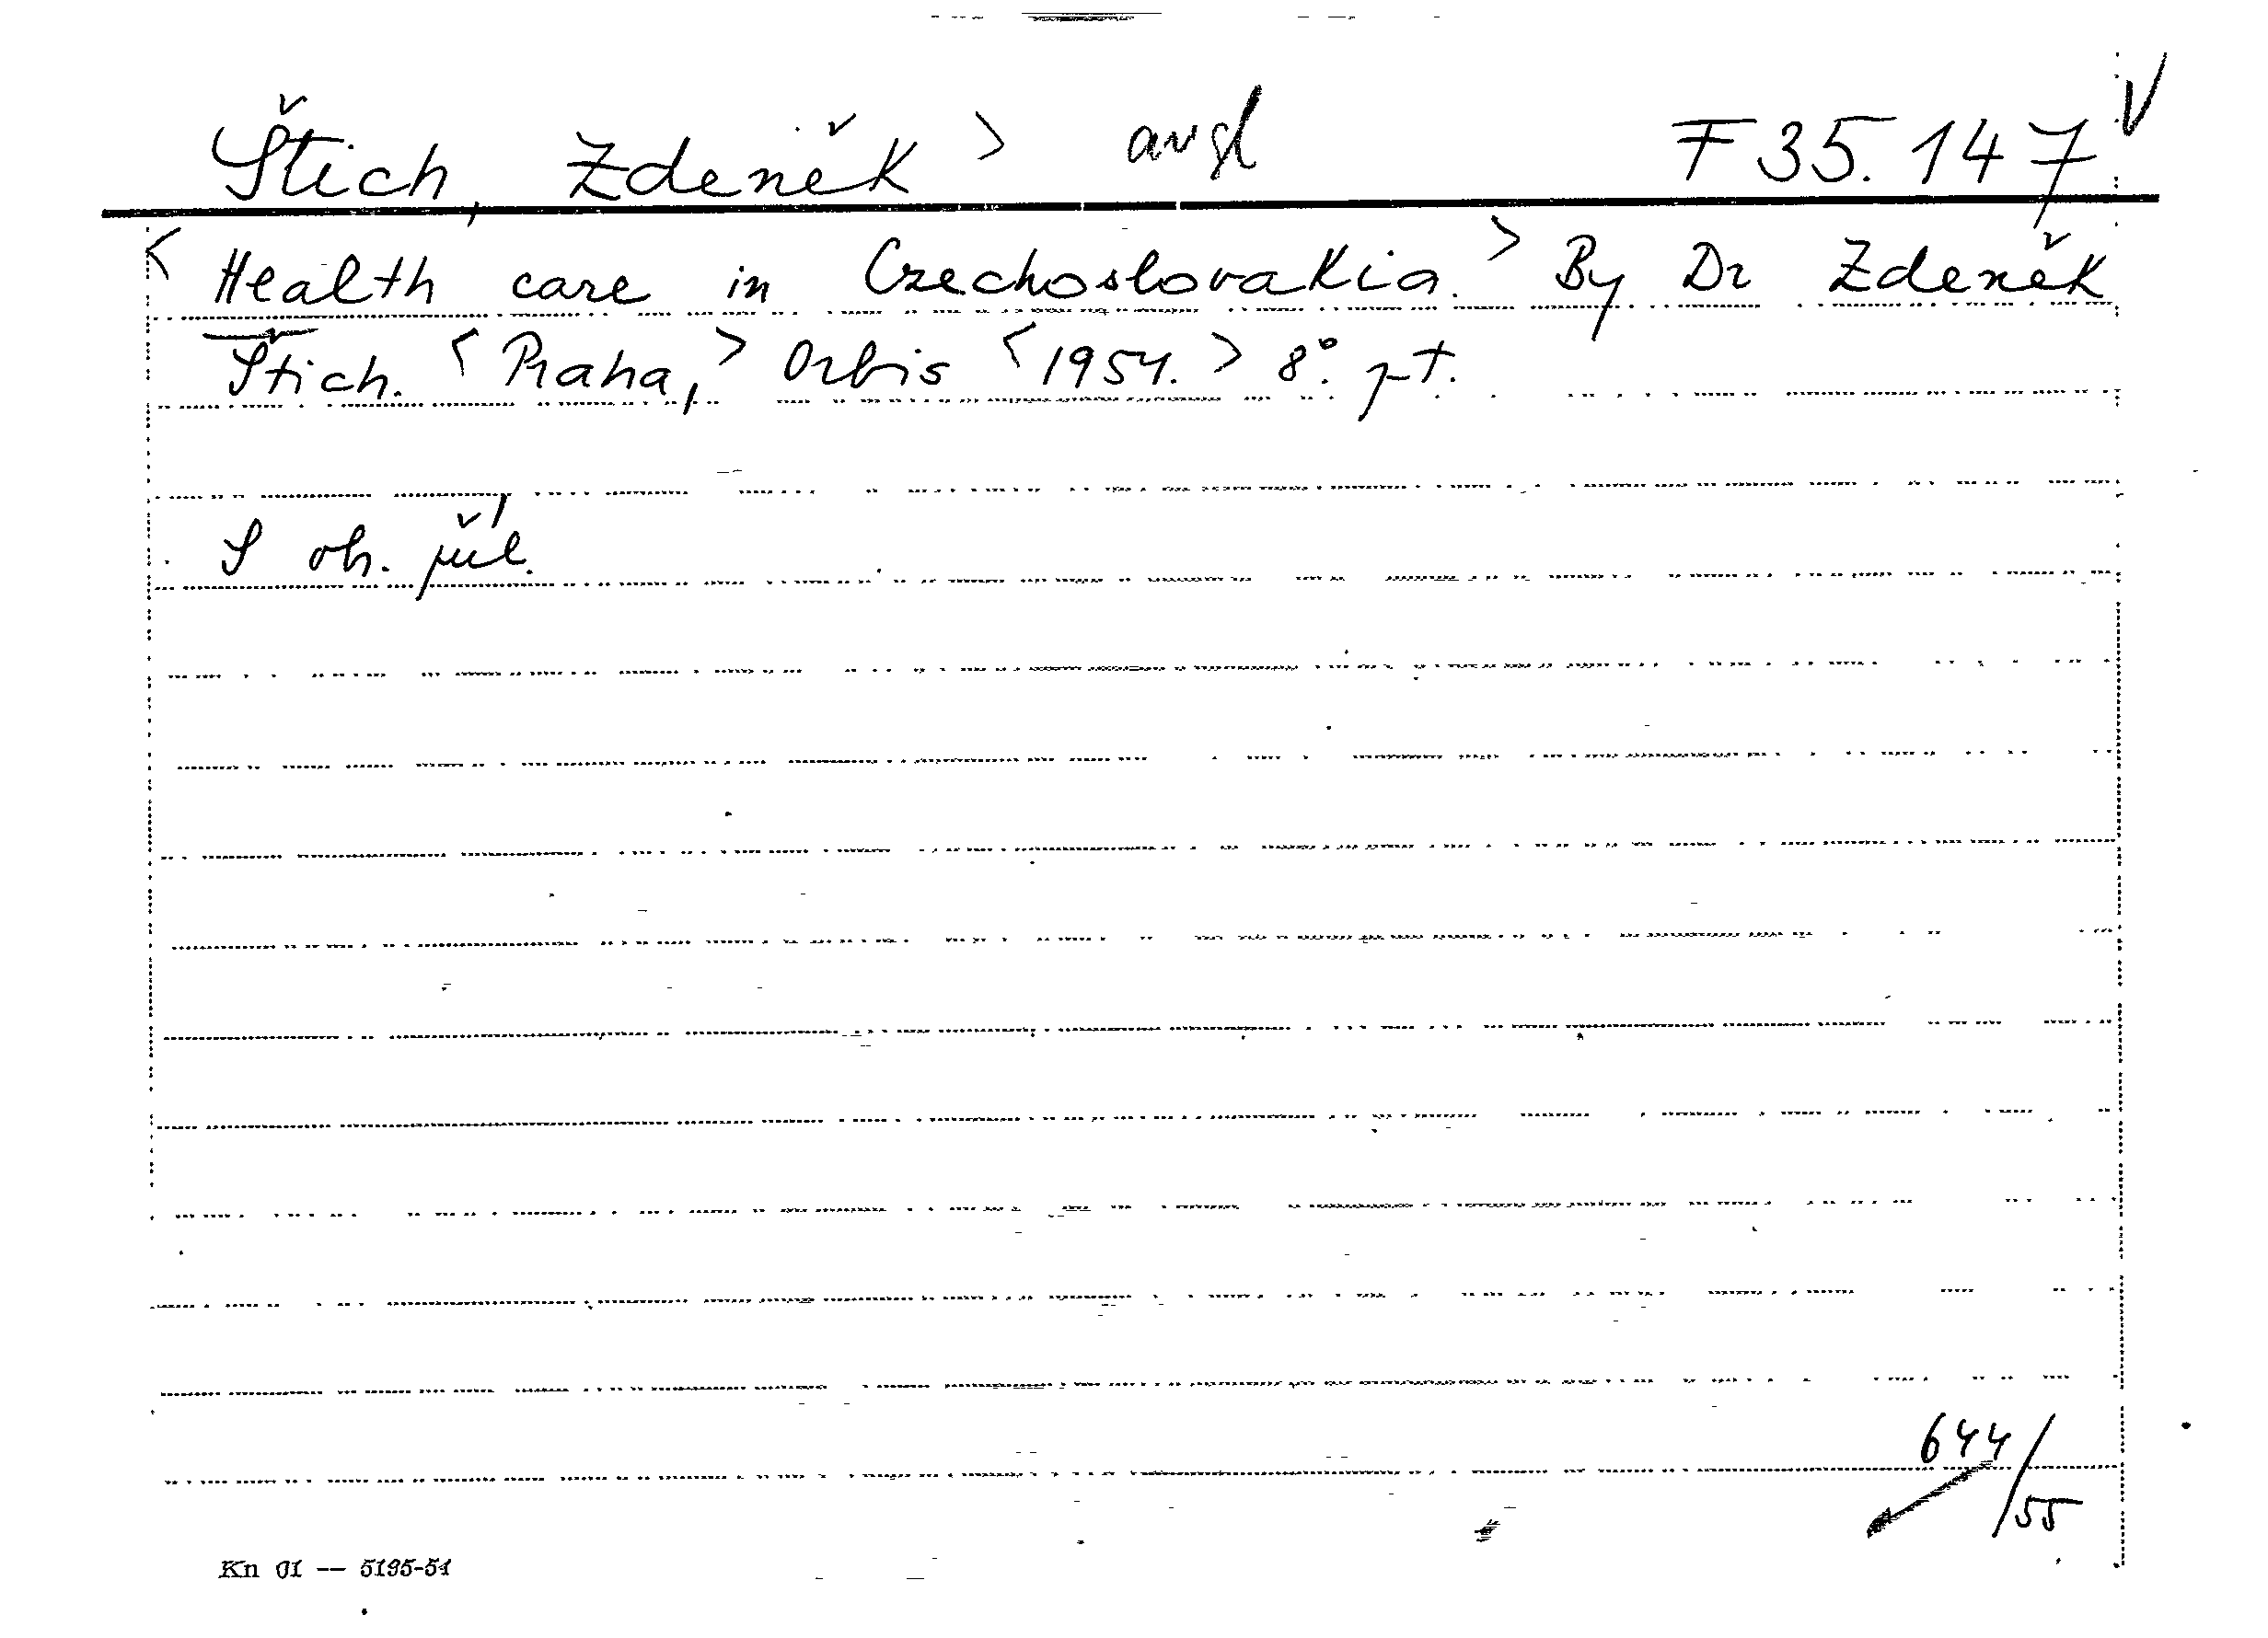 Štich, Zdeněk > angl F 35.147 V
< Health care in Czechoslovakia. > By Dr Zdeněk
Štich. < Praha, > Orbis < 1954. > 8°. pt.
S ob. příl.
644/55
Kn 01 — 5195-54